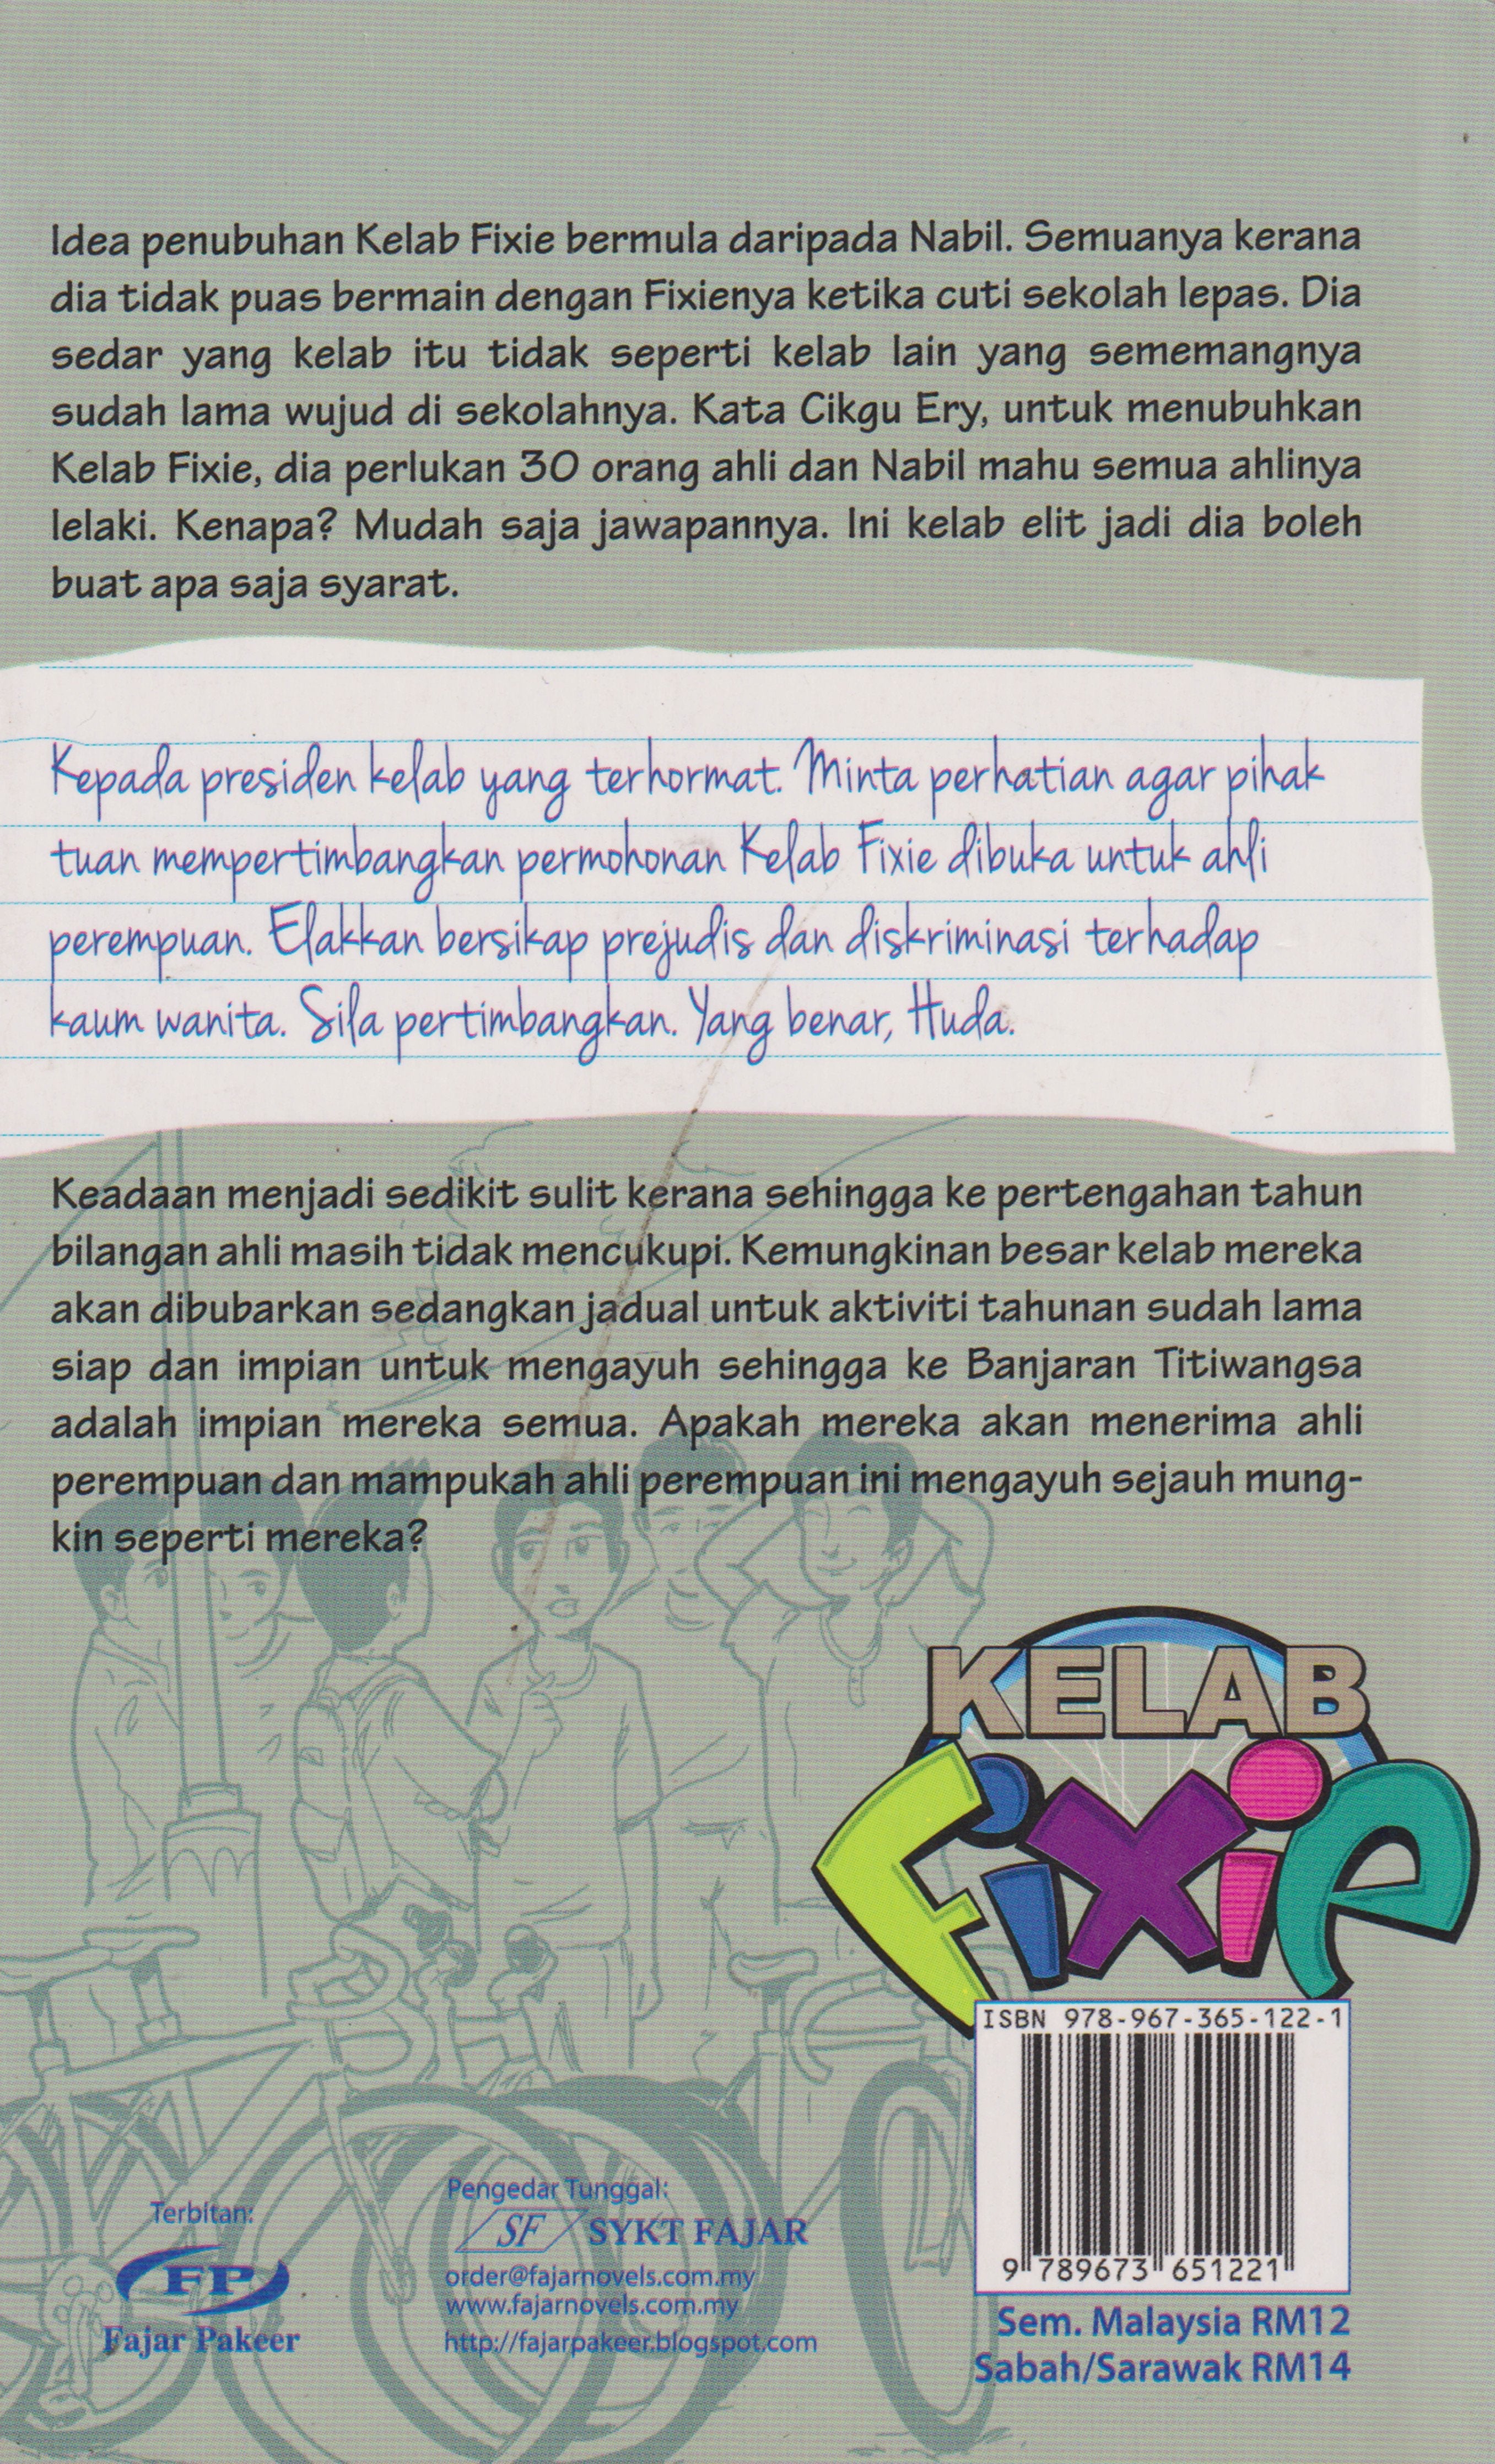 Idea penubuhan Kelab Fixie bermula daripada Nabil. Semuanya kerana
dia tidak puas bermain dengan Fixienya ketika cuti sekolah lepas. Dia
sedar yang kelab itu tidak seperti kelab lain yang sememangnya
sudah lama wujud di sekolahnya. Kata Cikgu Ery, untuk menubuhkan
Kelab Fixie, dia perlukan 30 orang ahli dan Nabil mahu semua ahlinya
lelaki. Kenapa? Mudah saja jawapannya. Ini kelab elit jadi dia boleh
buat apa saja syarat.
Kepada presiden kelab yang terhormat. Minta perhatian agar pihak
tuan mempertimbangkan permohonan Kelab Fixie dibuka untuk ahli
perempuan. Elakkan bersikap prejudis dan diskriminasi terhadap
kaum wanita. Sila pertimbangkan. Yang benar, Huda.
Keadaan menjadi sedikit sulit kerana sehingga ke pertengahan tahun
bilangan ahli masih tidak mencukupi. Kemungkinan besar kelab mereka
akan dibubarkan sedangkan jadual untuk aktiviti tahunan sudah lama
siap dan impian untuk mengayuh sehingga ke Banjaran Titiwangsa
adalah impian mereka semua. Apakah mereka akan menerima ahli
perempuan dan mampukah ahli perempuan ini mengayuh sejauh mung-
kin seperti mereka?
KELAB
Fixie
ISBN 978-967-365-122-1
9 789673 651221
Sem. Malaysia RM12
Sabah/Sarawak RM14
Terbitan:
FP
Fajar Pakeer
Pengedar Tunggal:
SF SYKT FAJAR
order@fajarnovels.com.my
www.fajarnovels.com.my
http://fajarpakeer.blogspot.com